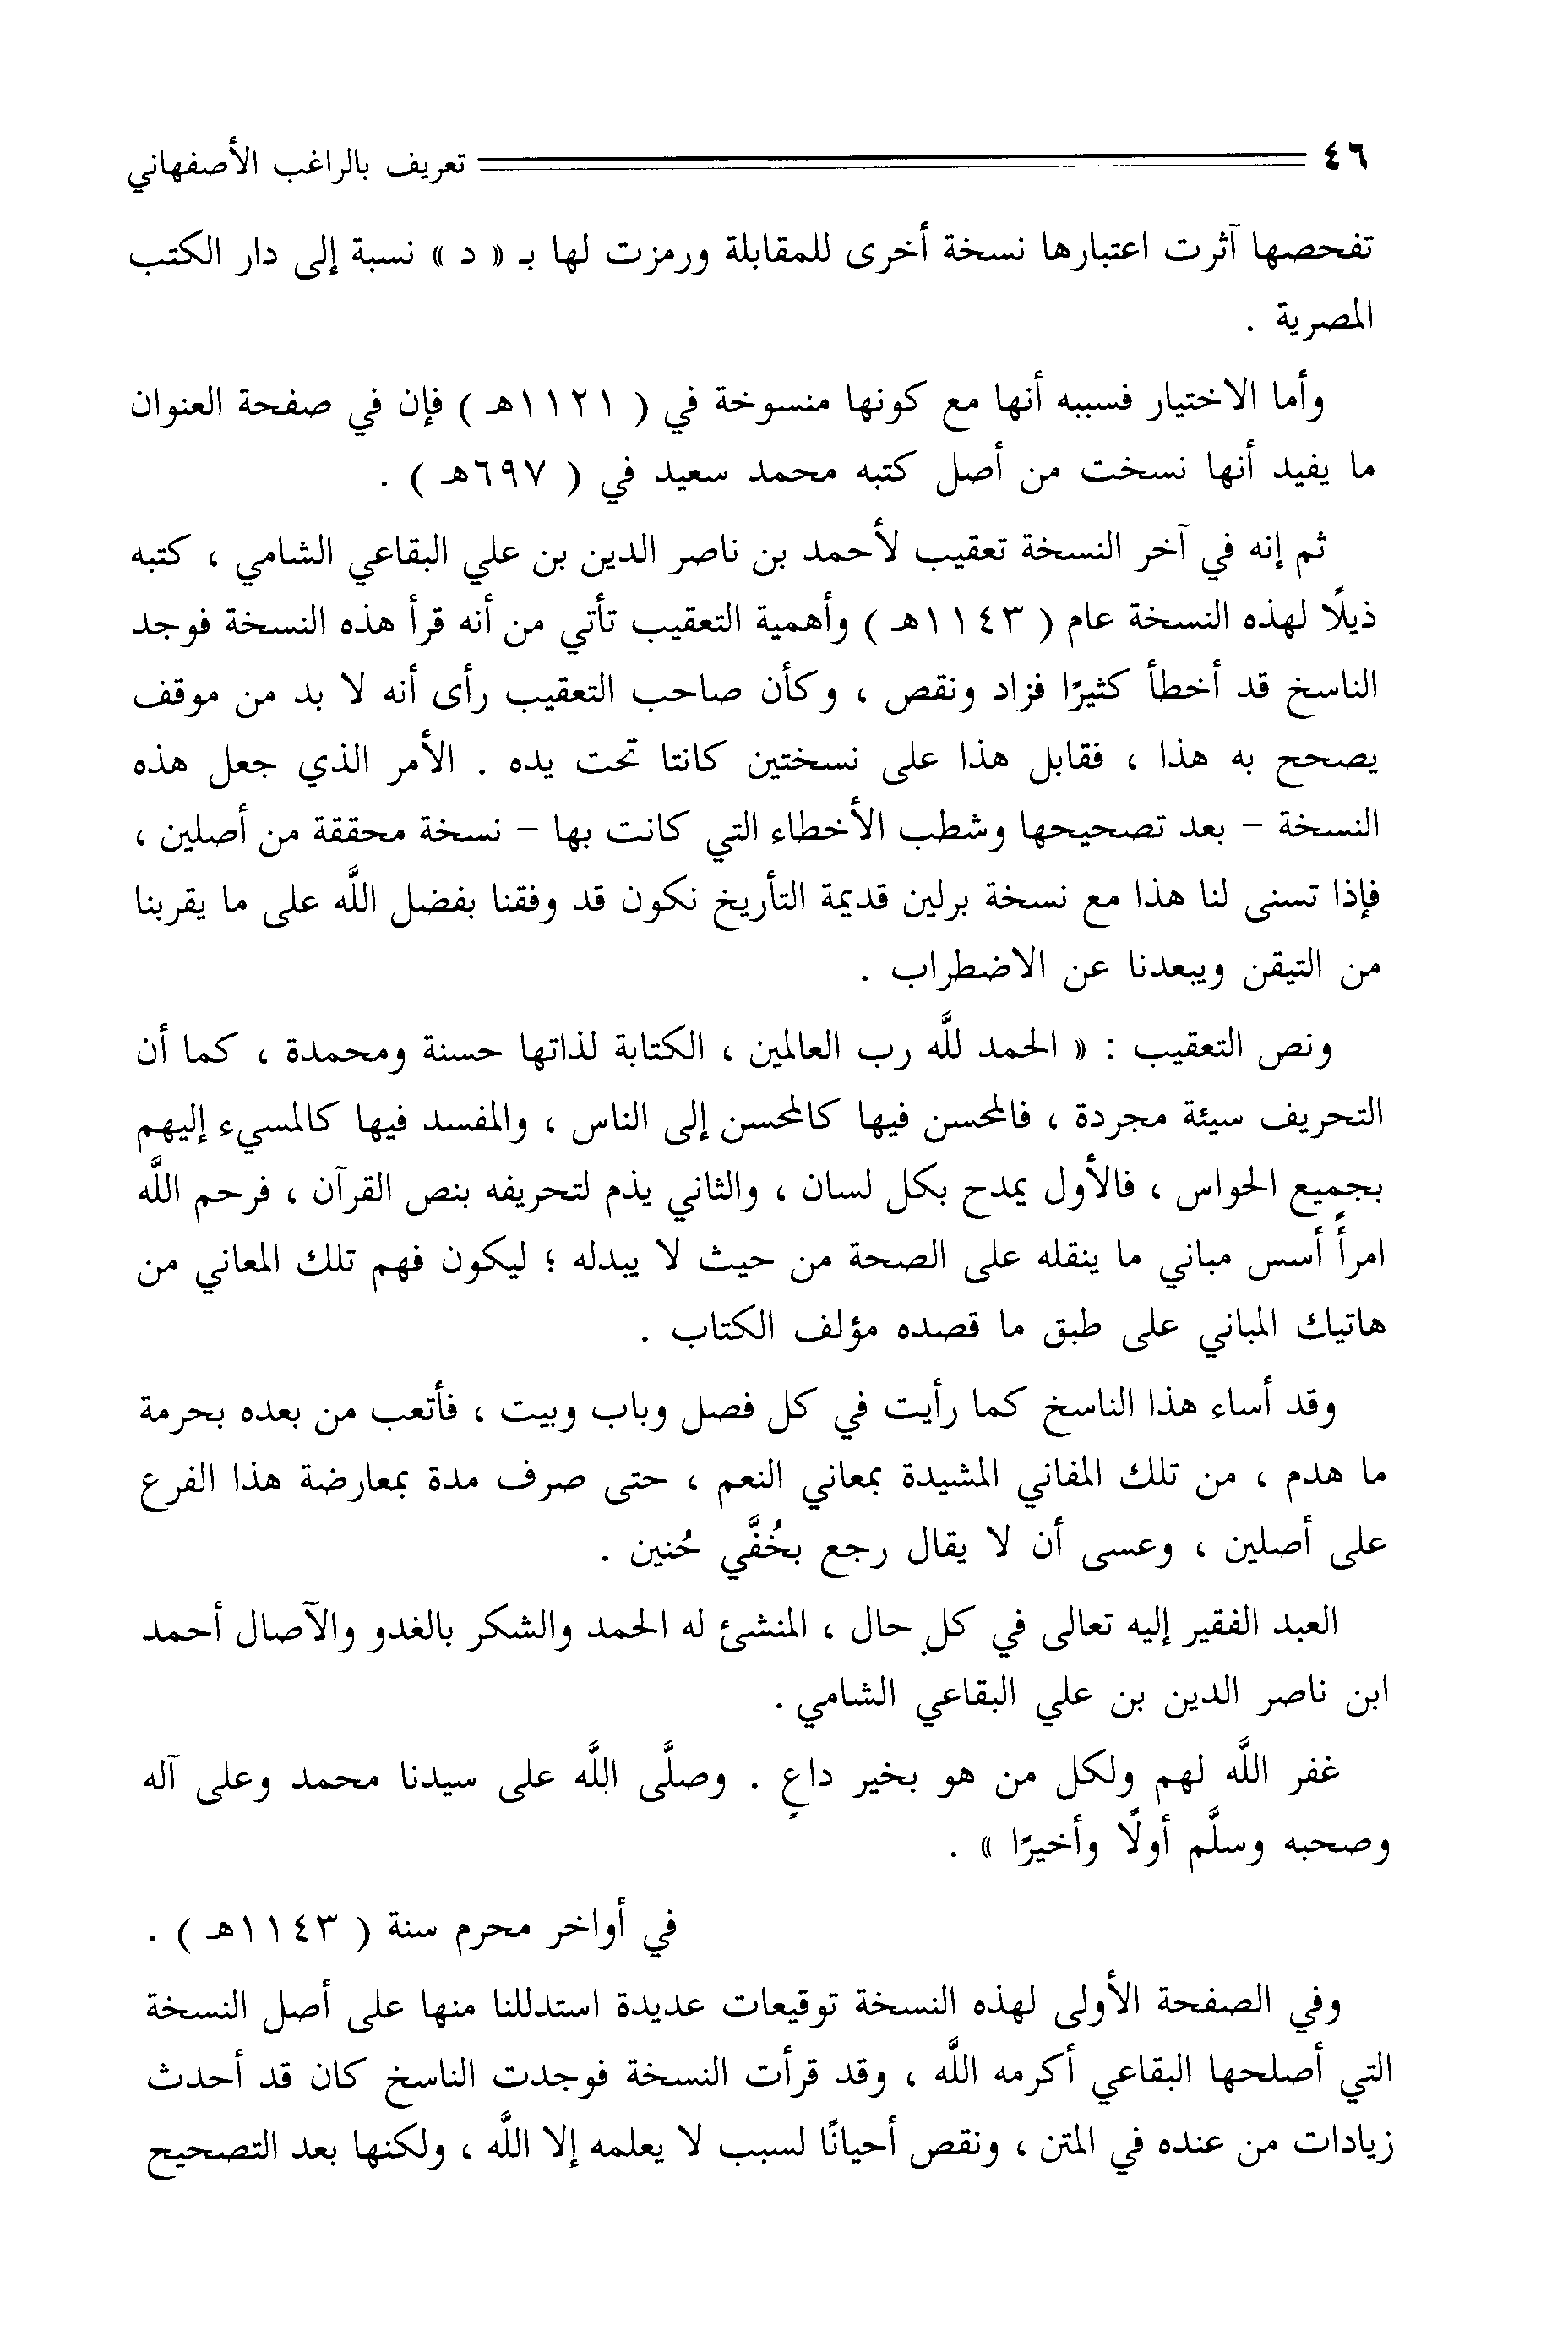 ٤٦ تعريف بالراغب الأصفهاني
تفحصها آثرت اعتبارها نسخة أخرى للمقابلة ورمزت لها بـ « د » نسبة إلى دار الكتب
المصرية .
وأما الاختيار فسببه أنها مع كونها منسوخة في ( ١١٢١هـ ) فإن في صفحة العنوان
ما يفيد أنها نسخت من أصل كتبه محمد سعيد في ( ٦٩٧هـ ) .
ثم إنه في آخر النسخة تعقيب لأحمد بن ناصر الدين بن علي البقاعي الشامي ، كتبه
ذيلًا لهذه النسخة عام ( ١١٤٣هـ ) وأهمية التعقيب تأتي من أنه قرأ هذه النسخة فوجد
الناسخ قد أخطأ كثيرًا فزاد ونقص ، وكأن صاحب التعقيب رأى أنه لا بد من موقف
يصحح به هذا ، فقابل هذا على نسختين كانتا تحت يده . الأمر الذي جعل هذه
النسخة - بعد تصحيحها وشطب الأخطاء التي كانت بها - نسخة محققة من أصلين ،
فإذا تسنى لنا هذا مع نسخة برلين قديمة التأريخ نكون قد وفقنا بفضل اللَّه على ما يقربنا
من التيقن ويبعدنا عن الاضطراب .
ونص التعقيب : « الحمد للَّه رب العالمين ، الكتابة لذاتها حسنة ومحمدة ، كما أن
التحريف سيئة مجردة ، فالمحسن فيها كالمحسن إلى الناس ، والمفسد فيها كالمسيء إليهم
بجميع الحواس ، فالأول يمدح بكل لسان ، والثاني يذم لتحريفه بنص القرآن ، فرحم اللَّه
امرأً أسس مباني ما ينقله على الصحة من حيث لا يبدله ؛ ليكون فهم تلك المعاني من
هاتيك المباني على طبق ما قصده مؤلف الكتاب .
وقد أساء هذا الناسخ كما رأيت في كل فصل وباب وبيت ، فأتعب من بعده بحرمة
ما هدم ، من تلك المفاني المشيدة بمعاني النعم ، حتى صرف مدة بمعارضة هذا الفرع
على أصلين ، وعسى أن لا يقال رجع بخُفَّي حُنين .
العبد الفقير إليه تعالى في كل حال ، المنشئ له الحمد والشكر بالغدو والآصال أحمد
ابن ناصر الدين بن علي البقاعي الشامي .
غفر اللَّه لهم ولكل من هو بخير داعٍ . وصلَّى اللَّه على سيدنا محمد وعلى آله
وصحبه وسلَّم أولًا وأخيرًا » .
في أواخر محرم سنة ( ١١٤٣هـ ) .
وفي الصفحة الأولى لهذه النسخة توقيعات عديدة استدللنا منها على أصل النسخة
التي أصلحها البقاعي أكرمه اللَّه ، وقد قرأت النسخة فوجدت الناسخ كان قد أحدث
زيادات من عنده في المتن ، ونقص أحيانًا لسبب لا يعلمه إلا اللَّه ، ولكنها بعد التصحيح